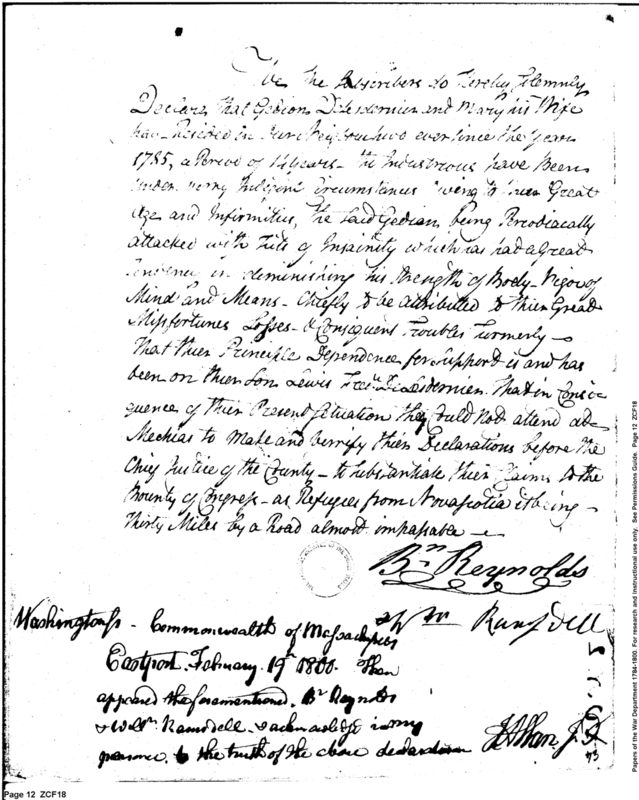 We the Subscribers do hereby Solemnly
Declare, That Gedion Delesdernier and Mary his Wife
have Resided in Our Neighbourhood ever since the Year
1785, a Period of 14 Years - tho Industrous have Been
under very Indigent Circumstances owing to their Great
Age and Infirmities, the Said Gedion being Perodiacally
attacked with Fits of Insainity which has had a Great
Tendency in deminishing his Strength of Body - Vigor of
Mind and Means - Chiefly to be attributed to thier Great
Missfortunes Losses - & Consiquent Troubles Formerly -
That thier Principle Dependence for Support is and has
been on thier Son Lewis Fredk Delesdernier. That in Conse-
quence of thier Present Situation they Could not attend at
Mechias to Make and Verrify thier Declarations before the
Chief Justice of the County - to Substantiate thier Claims to the
Bounty of Congress - as Refugees from Novascotia it being -
Thirty Miles by a Road almost impassable -
Bn Reynolds
Wm Ramsdell
Washington Ss - Commonwealth of Massachusetts
Eastport February 19th 1800. Then
appeared the forementioned Bn Reynolds
& Willm Ramsdell & acknowledge in my
presence to the truth of the above declaration
J Allan J. P.
Page 12 ZCF18
Papers of the War Department 1784-1800. For research and Instructional use only. See Permissions Guide. Page 12 ZCF18